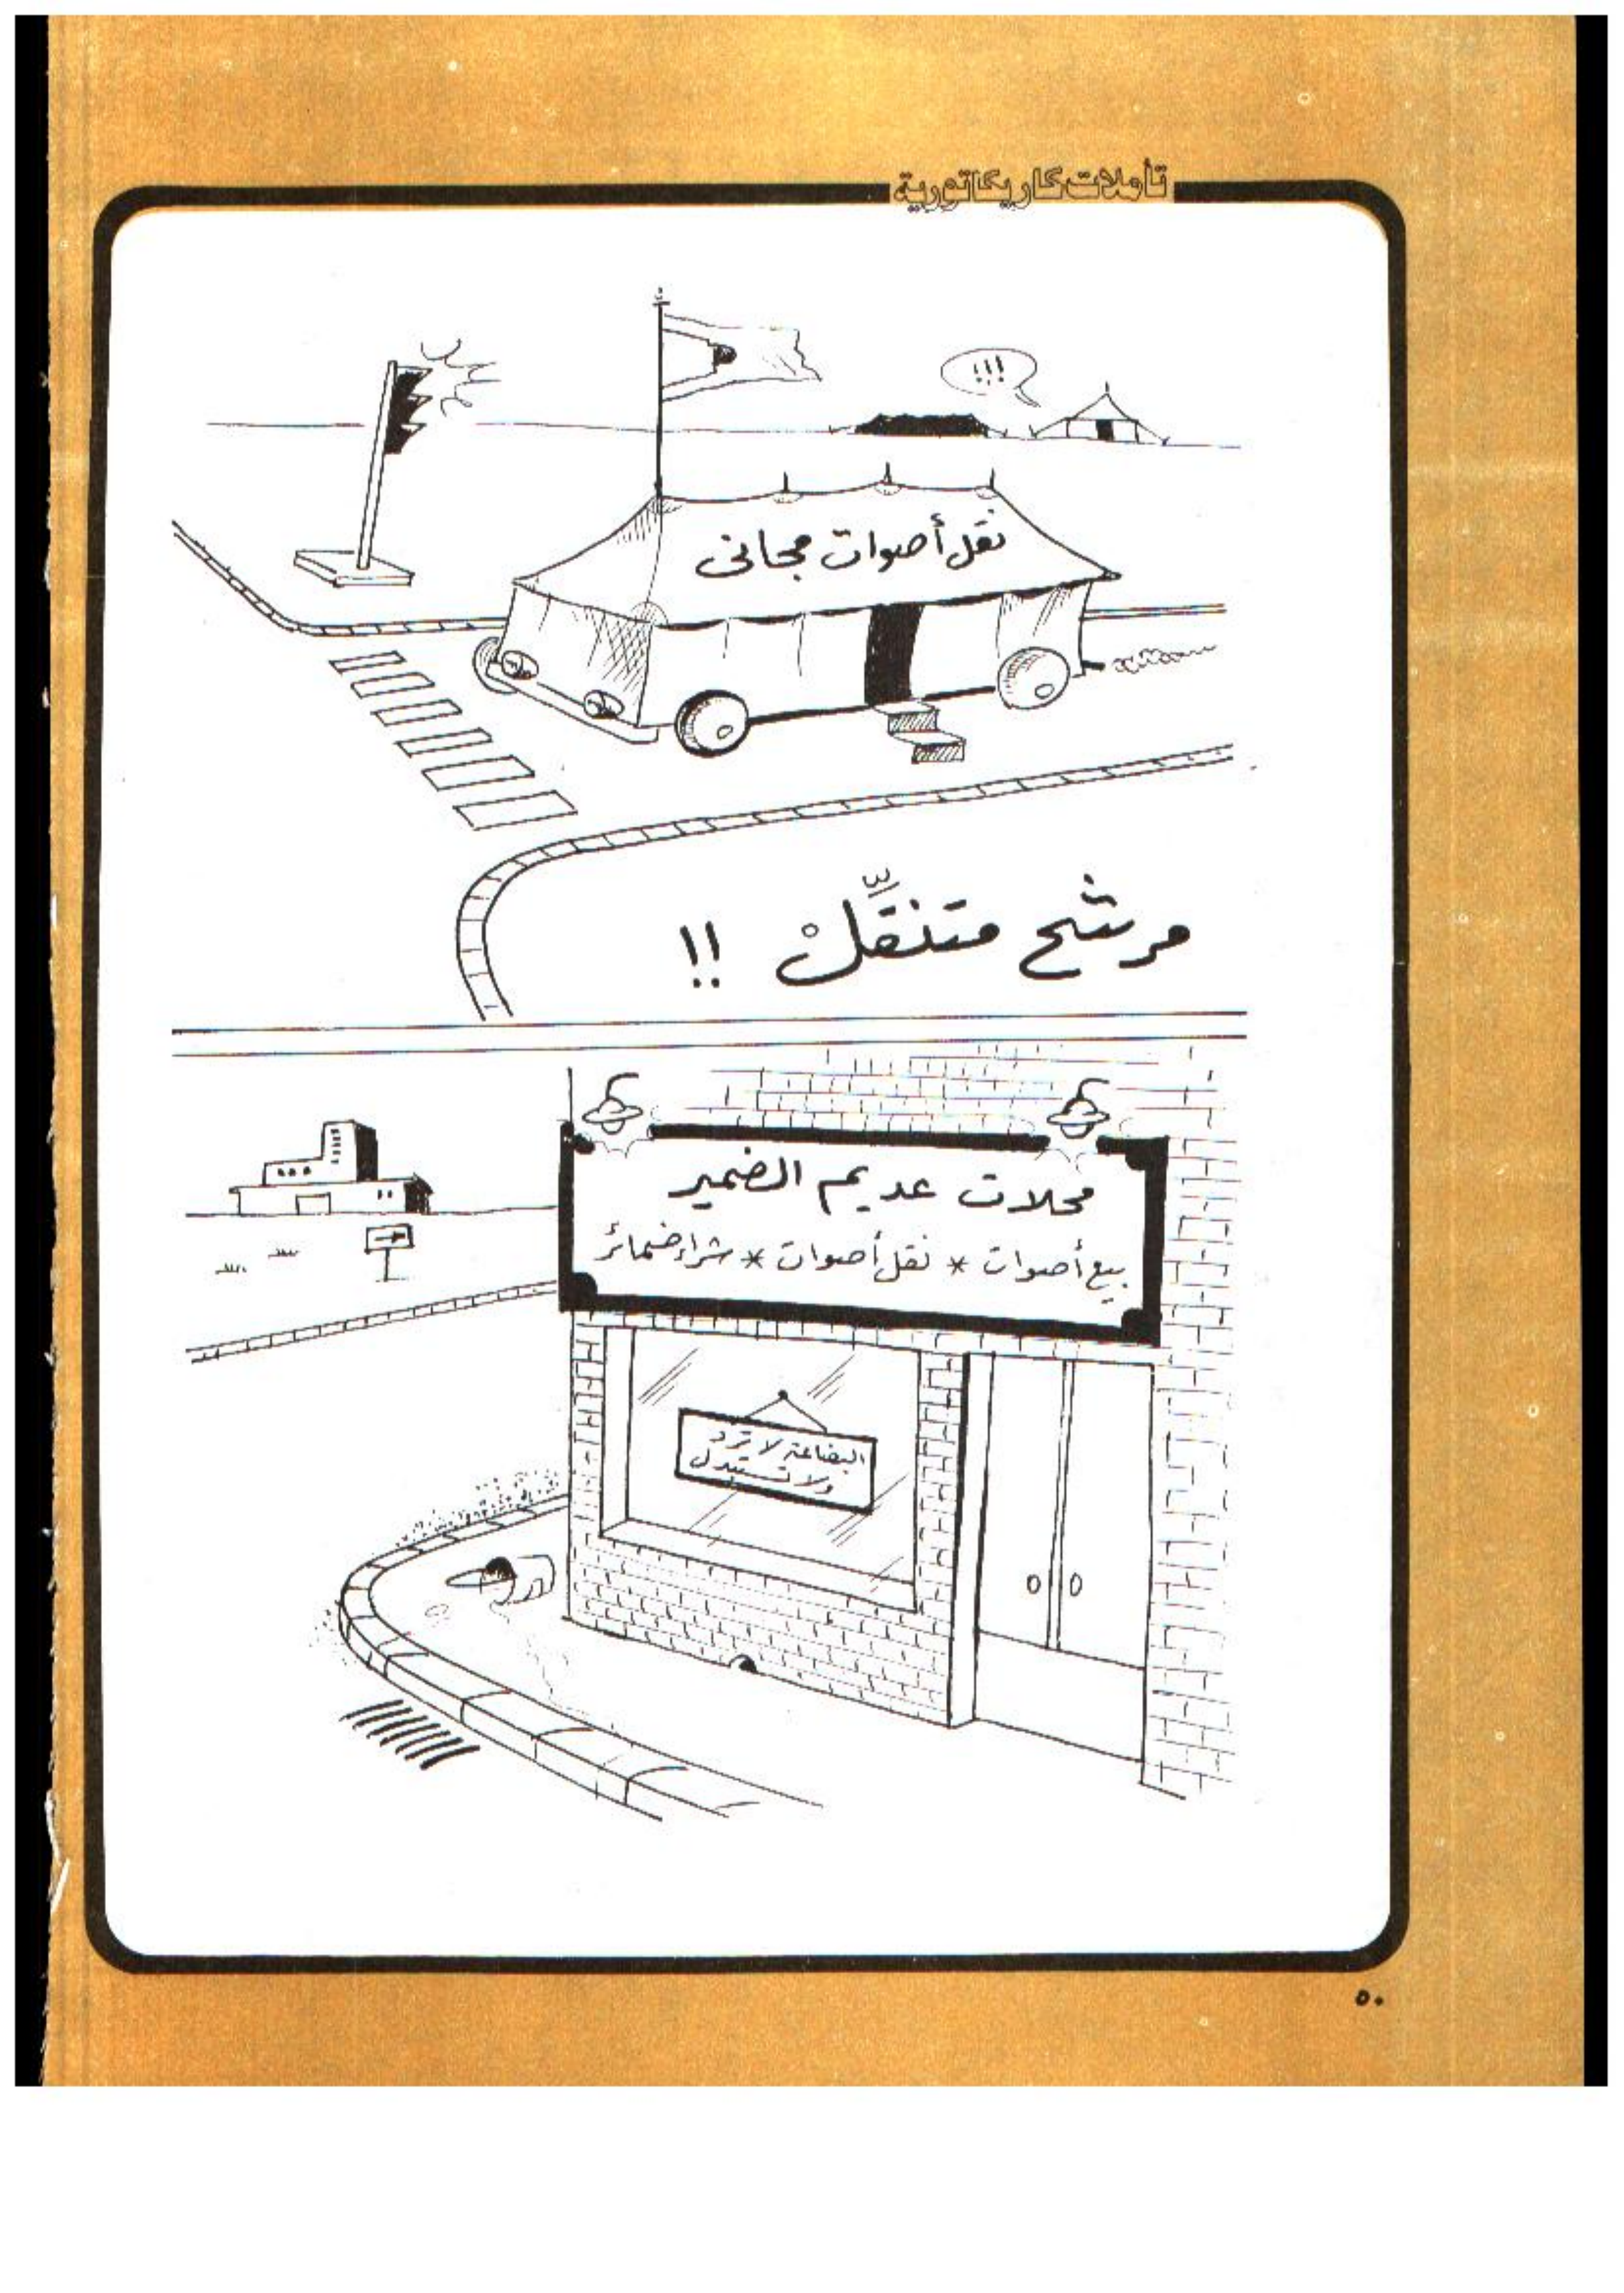 تأملات كاريكاتورية
!!!
نقل أصوات مجاني
مرشح متنقِّلْ !!
محلات عديم الضمير
بيع أصوات * نقل أصوات * شراء ضمائر
البضاعة لا ترد
ولا تستبدل
٥٠